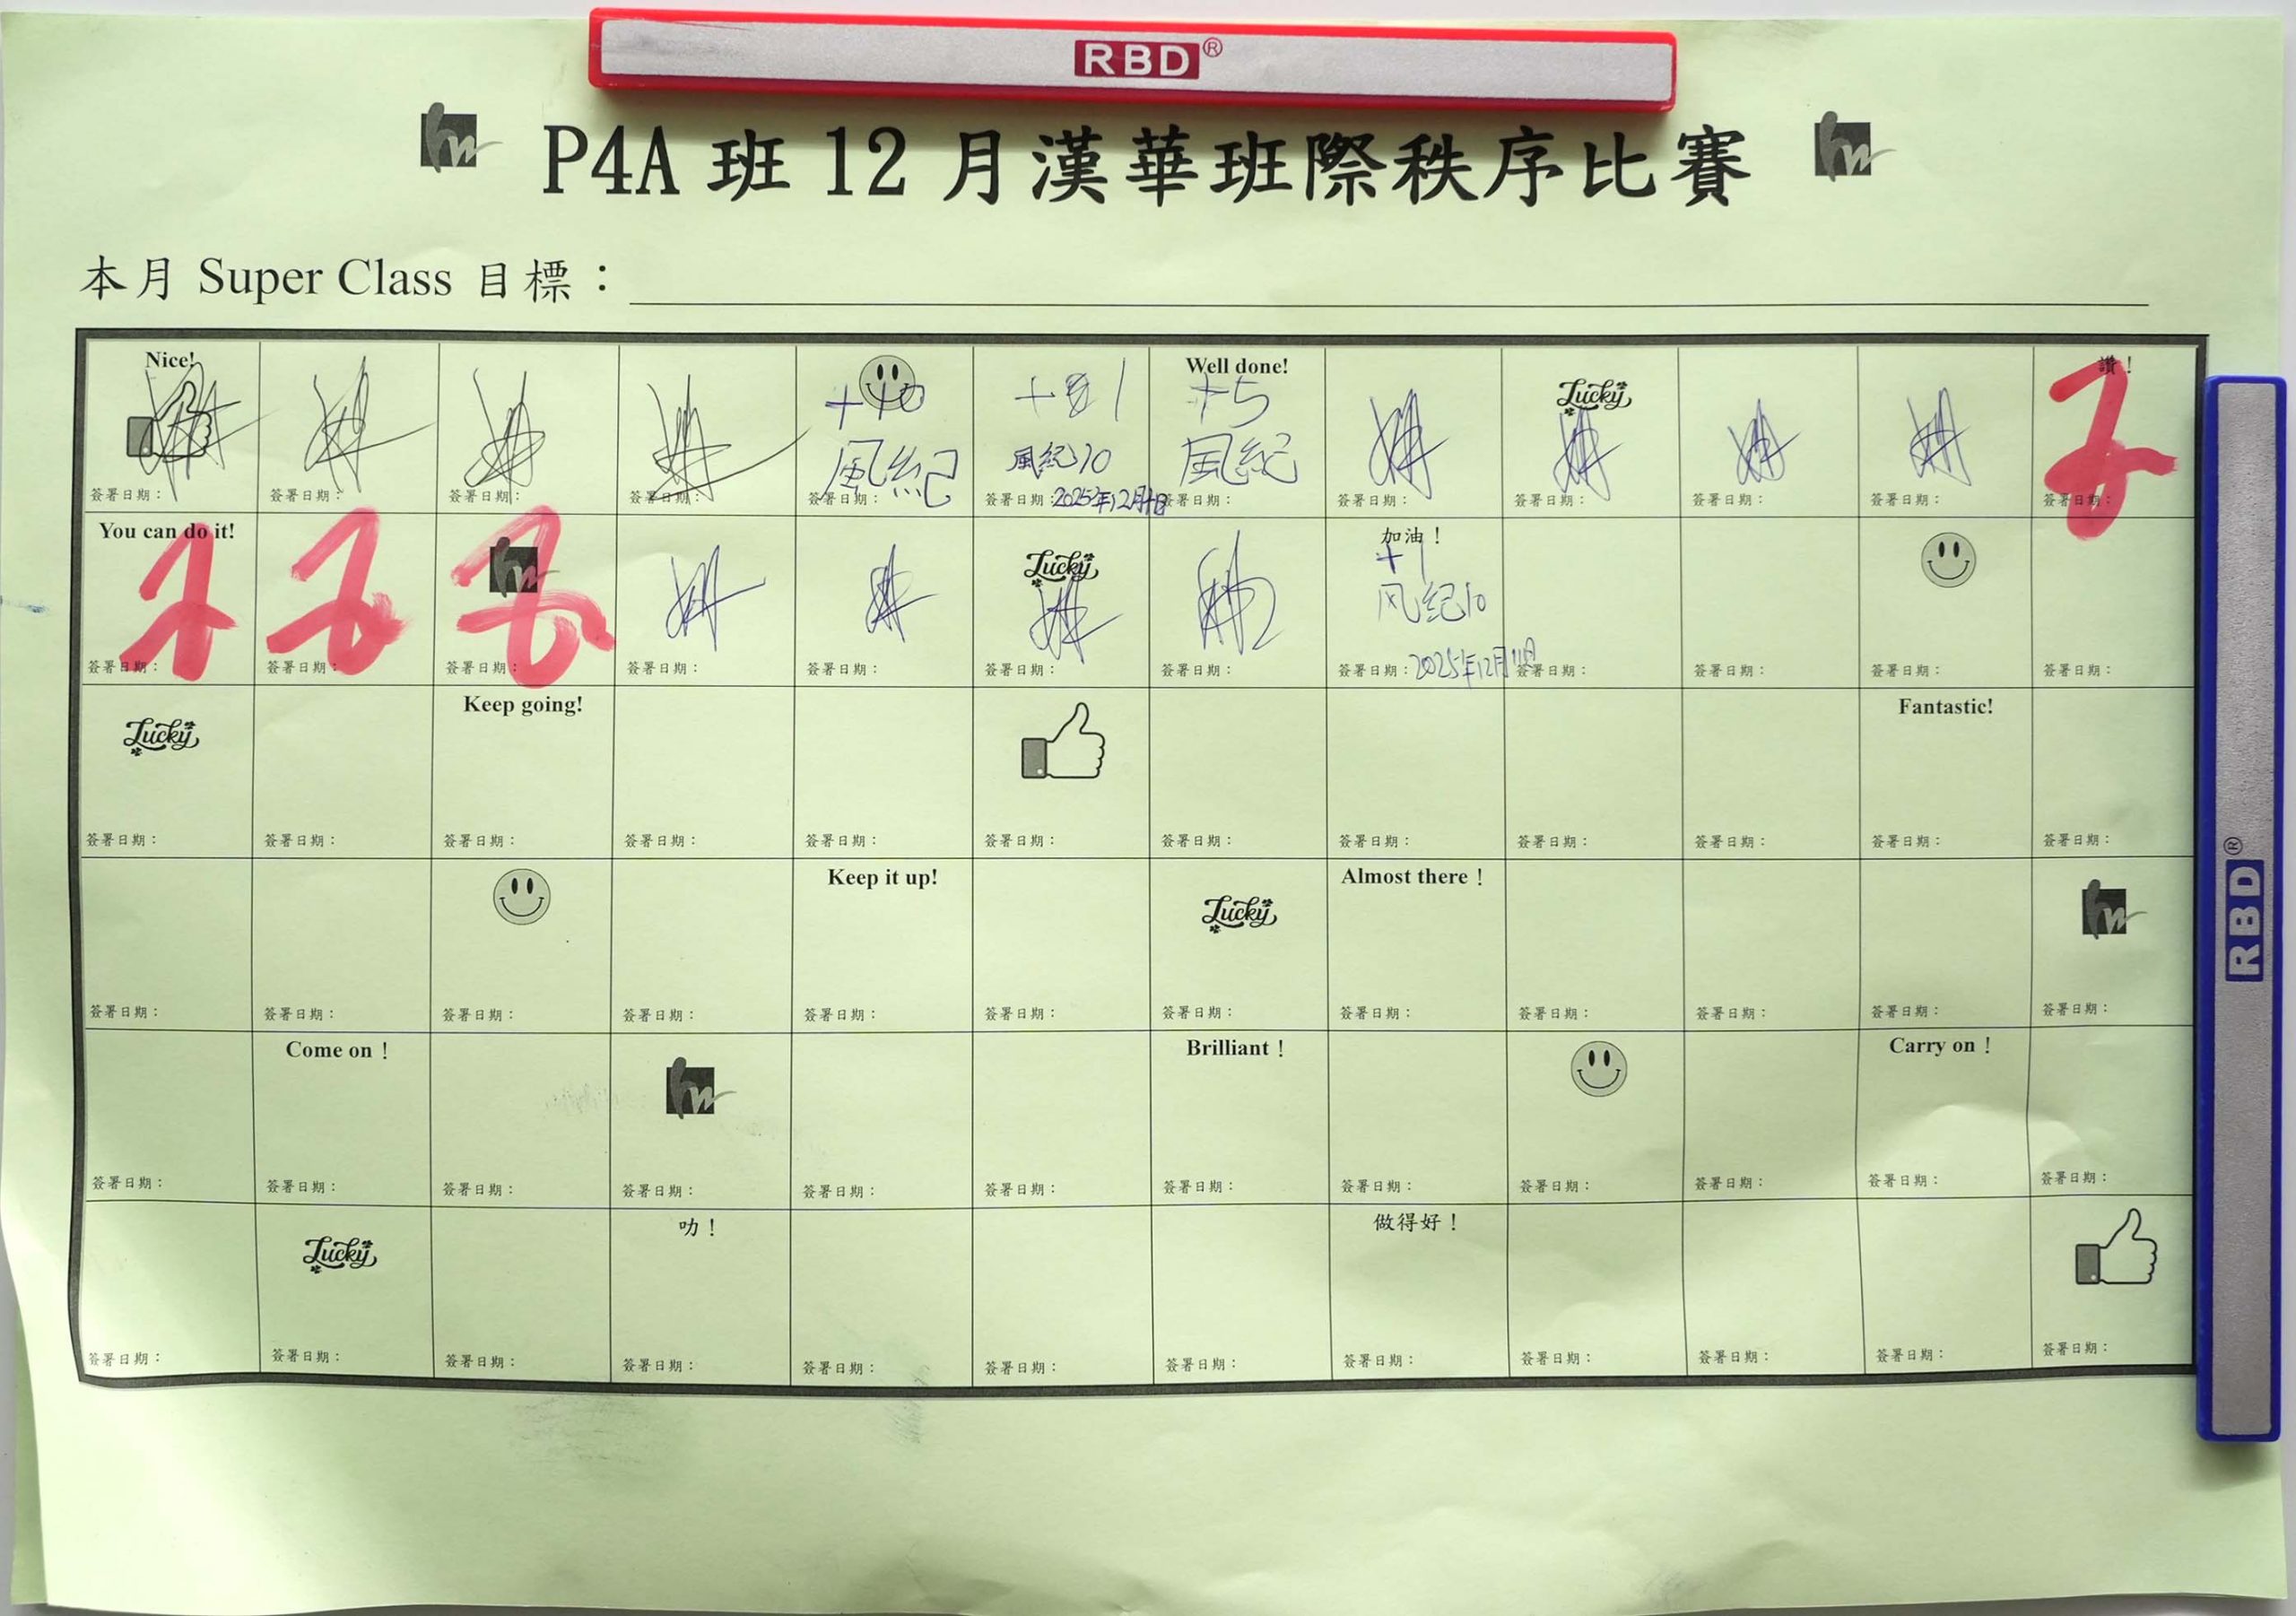 RBD®
P4A 班 12 月漢華班際秩序比賽
本月 Super Class 目標：
Nice!
Well done!
Lucky
讚！
+10
+81
+5
風紀
風紀10
風紀
簽署日期：
簽署日期：
簽署日期：
簽署日期：
簽署日期：
簽署日期：2025年12月1日
簽署日期：
簽署日期：
簽署日期：
簽署日期：
簽署日期：
簽署日期：
You can do it!
hw
Lucky
加油！
+1
风纪10
簽署日期：
簽署日期：
簽署日期：
簽署日期：
簽署日期：
簽署日期：
簽署日期：
簽署日期：2025年12月11日
簽署日期：
簽署日期：
簽署日期：
簽署日期：
Lucky
Keep going!
Fantastic!
簽署日期：
簽署日期：
簽署日期：
簽署日期：
簽署日期：
簽署日期：
簽署日期：
簽署日期：
簽署日期：
簽署日期：
簽署日期：
簽署日期：
Keep it up!
Lucky
Almost there！
hw
簽署日期：
簽署日期：
簽署日期：
簽署日期：
簽署日期：
簽署日期：
簽署日期：
簽署日期：
簽署日期：
簽署日期：
簽署日期：
簽署日期：
Come on！
hw
Brilliant！
Carry on！
簽署日期：
簽署日期：
簽署日期：
簽署日期：
簽署日期：
簽署日期：
簽署日期：
簽署日期：
簽署日期：
簽署日期：
簽署日期：
簽署日期：
Lucky
叻！
做得好！
簽署日期：
簽署日期：
簽署日期：
簽署日期：
簽署日期：
簽署日期：
簽署日期：
簽署日期：
簽署日期：
簽署日期：
簽署日期：
簽署日期：
RBD®